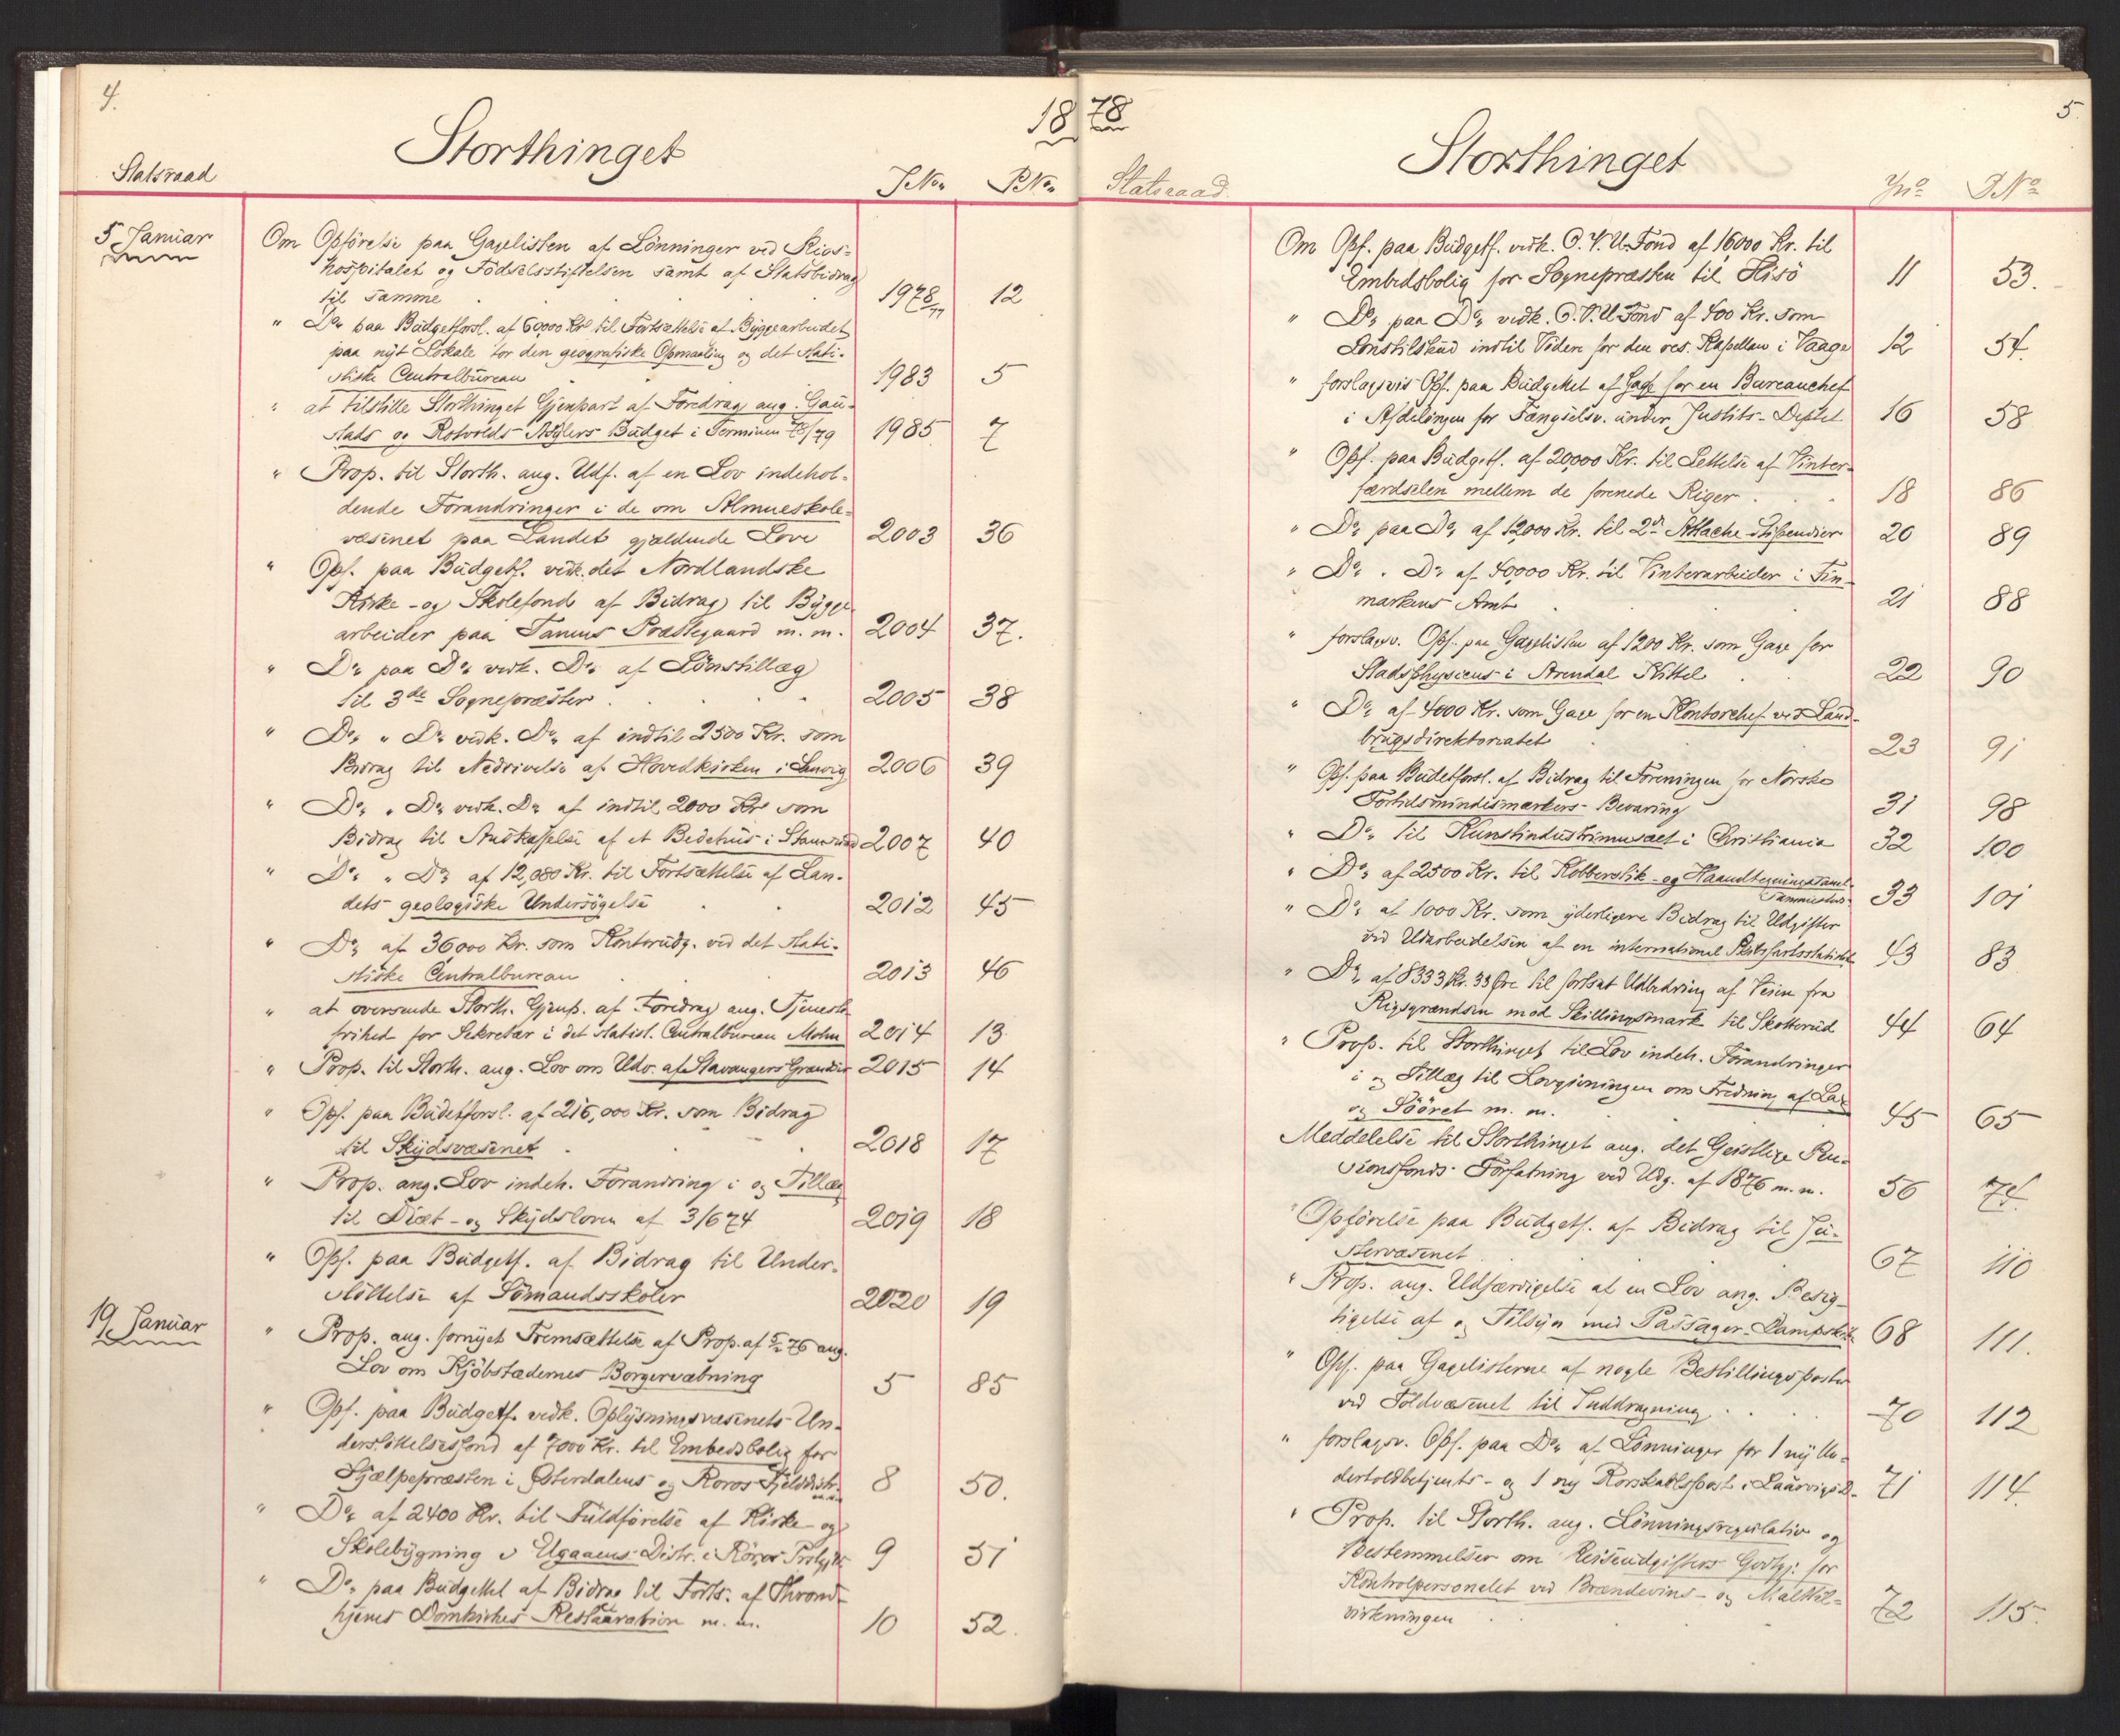 4.
1878
Storthinget
Statsraad
J.No.
P.No.
5 Januar
Om Opförelse paa Gagelisten af Lönninger ved Rigs-
hospitalet og Födselsstiftelsen samt af Statsbidrag
til samme 1978/77 12
" Do. paa Budgetforsl. af 60,000 Kr. til Fortsættelse af Byggearbeidet
paa nyt Lokale for den geografiske Opmaaling og det stati-
stiske Centralbureau 1983 5
" at tilstille Storthinget Gjenpart af Foredrag ang. Gau-
stads og Rotvolds Asylers Budget i Terminen 78/79 1985 7
" Prop. til Storth. ang. Udf. af en Lov indehol-
dende Forandringer i de om Almueskole-
væsenet paa Landet gjældende Love 2003 36
" Opf. paa Budgetf. vedk. det Nordlandske
Kirke- og Skolefond af Bidrag til Bygge-
arbeider paa Tanens Præstegaard m. m. 2004 37.
" Do. paa Do. vedk. Do. af Lönstillæg
til 3de Sognepræster 2005 38
" Do. " Do. vedk. Do. af indtil 2500 Kr. som
Bidrag til Nedrivelse af Hovedkirken i Lenvig 2006 39
" Do. " Do. vedk. Do. af indtil 2000 Kr. som
Bidrag til Anskaffelse af et Bedehus i 2007 40
" Do. " Do. af 12,080 Kr. til Fortsættelse af Lan-
dets geologiske Undersögelse 2012 45
" Do. af 36000 Kr. som Kontorudg. ved det stati-
stiske Centralbureau 2013 46
" at oversende Storth. Gjenp. af Foredrag ang. Tjeneste-
frihed for Sekretær i det statist. Centralbureau Mohn 2014 13
" Prop. til Storth. ang. Lov om Udv. af Stavangers Grændser 2015 14
" Opf. paa Budetforsl. af 216,000 Kr. som Bidrag
til Skydsvæsenet 2018 17
" Prop. ang. Lov indeh. Forandring i og Tillæg
til Diæt- og Skydsloven af 3/6 74 2019 18
" Opf. paa Budgetf. af Bidrag til Under-
stöttelse af Sömandsskoler 2020 19
19 Januar
" Prop. ang. fornyet Fremsættelse af Prop. af 76 ang.
Lov om Kjöbstædernes Borgervæbning 5 85
" Opf. paa Budgetf. vedk. Oplysningsvæsenets Un-
derstöttelsesfond af 7000 Kr. til Embedsbolig for
Hjælpepræsten i Österdalens og Röros Fjelddistr. 8 50.
" Do. af 2400 Kr. til Fuldförelse af Kirke- og
Skolebygning i Distr. i Röros 9 51
" Do. paa Budgettet af Bidrag til Forts. af Thrond-
hjems Domkirkes Restauration m. m. 10 52.
5
Storthinget
Statsraad
Jno.
P.No.
Om Opf. paa Budgetf. vedk. O.V.U.Fond af 16000 Kr. til
Embedsbolig for Sognepræsten til Hisö 11 53.
" Do. paa Do. vedk. O.V.U.Fond af 400 Kr. som
Lönstilskud indtil Videre for den res. Kapellan i Vaage 12 54.
" forslagsvis Opf. paa Budgettet af Gage for en Bureauchef
i Afdelingen for Fængselsv. under Justits-Deptet 16 58
" Opf. paa Budgetf. af 20,000 Kr. til Lettelse af Vinter-
færdselen mellem de forenede Riger 18 86
" Do. paa Do. af 12000 Kr. til 2de Attache-Stipendier 20 89
" Do. " Do. af 40,000 Kr. til Vinterarbeider i Fin-
markens Amt 21 88
" forslagsv. Opf. paa Gagelisten af 1200 Kr. som Gage for
Stadsphysicus i Arendal Kittel 22 90
" Do. af 4000 Kr. som Gage for en Kontorchef ved Land-
brugsdirektoratet 23 91
" Opf. paa Budetforsl. af Bidrag til Foreningen for Norske
Fortidsmindesmærkers Bevaring 31 98
" Do. til Kunstindustrimusæet i Christiania 32 100
" Do. af 2500 Kr. til Kobberstik- og Haandtegningssaml. 33 101
" Do. af 1000 Kr. som yderligere Bidrag til Udgifter
ved Udarbeidelsen af en international Skibsfartsstatistik 43 83
" Do. af 8333 Kr. 33 Öre til fortsat Udbedring af Veien fra
Rigsgrændsen mod Skillingsmark til Skotterud 44 64
" Prop. til Storthinget til Lov indeh. Forandringer
i og Tillæg til Lovgivningen om Fredning af Lax
og Sööret m. m. 45 65
Meddelelse til Storthinget ang. det Geistlige Pen-
sionsfonds Forfatning ved Udg. af 1876 m. m. 56 74.
" Opförelse paa Budgetf. af Bidrag til Ju-
stervæsenet 67 110
" Prop. ang. Udfærdigelse af en Lov ang. Besig-
tigelse af og Tilsyn med Passager-Dampskibe 68 111.
" Opf. paa Gagelisterne af nogle Bestillingsposter
ved Toldvæsenet til Inddragning 70 112
" forslagsv. Opf. paa Do. af Lönninger for 1 ny Un-
dertoldbetjents- og 1 ny Rorskarlspost i 71 114.
" Prop. til Storth. ang. Lönningsregulativ og
Bestemmelser om Reiseudgifters Godtgj. for
Kontrolpersonalet ved Brændevins- og Malttil-
virkningen 72 115.